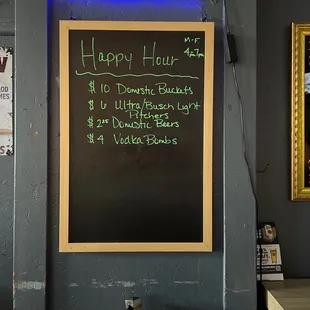 Happy Hour
M-F
4-7pm
$10 Domestic Buckets
$6 Ultra/Busch Light
Pitchers
$2.25 Domestic Beers
$4 Vodka Bombs